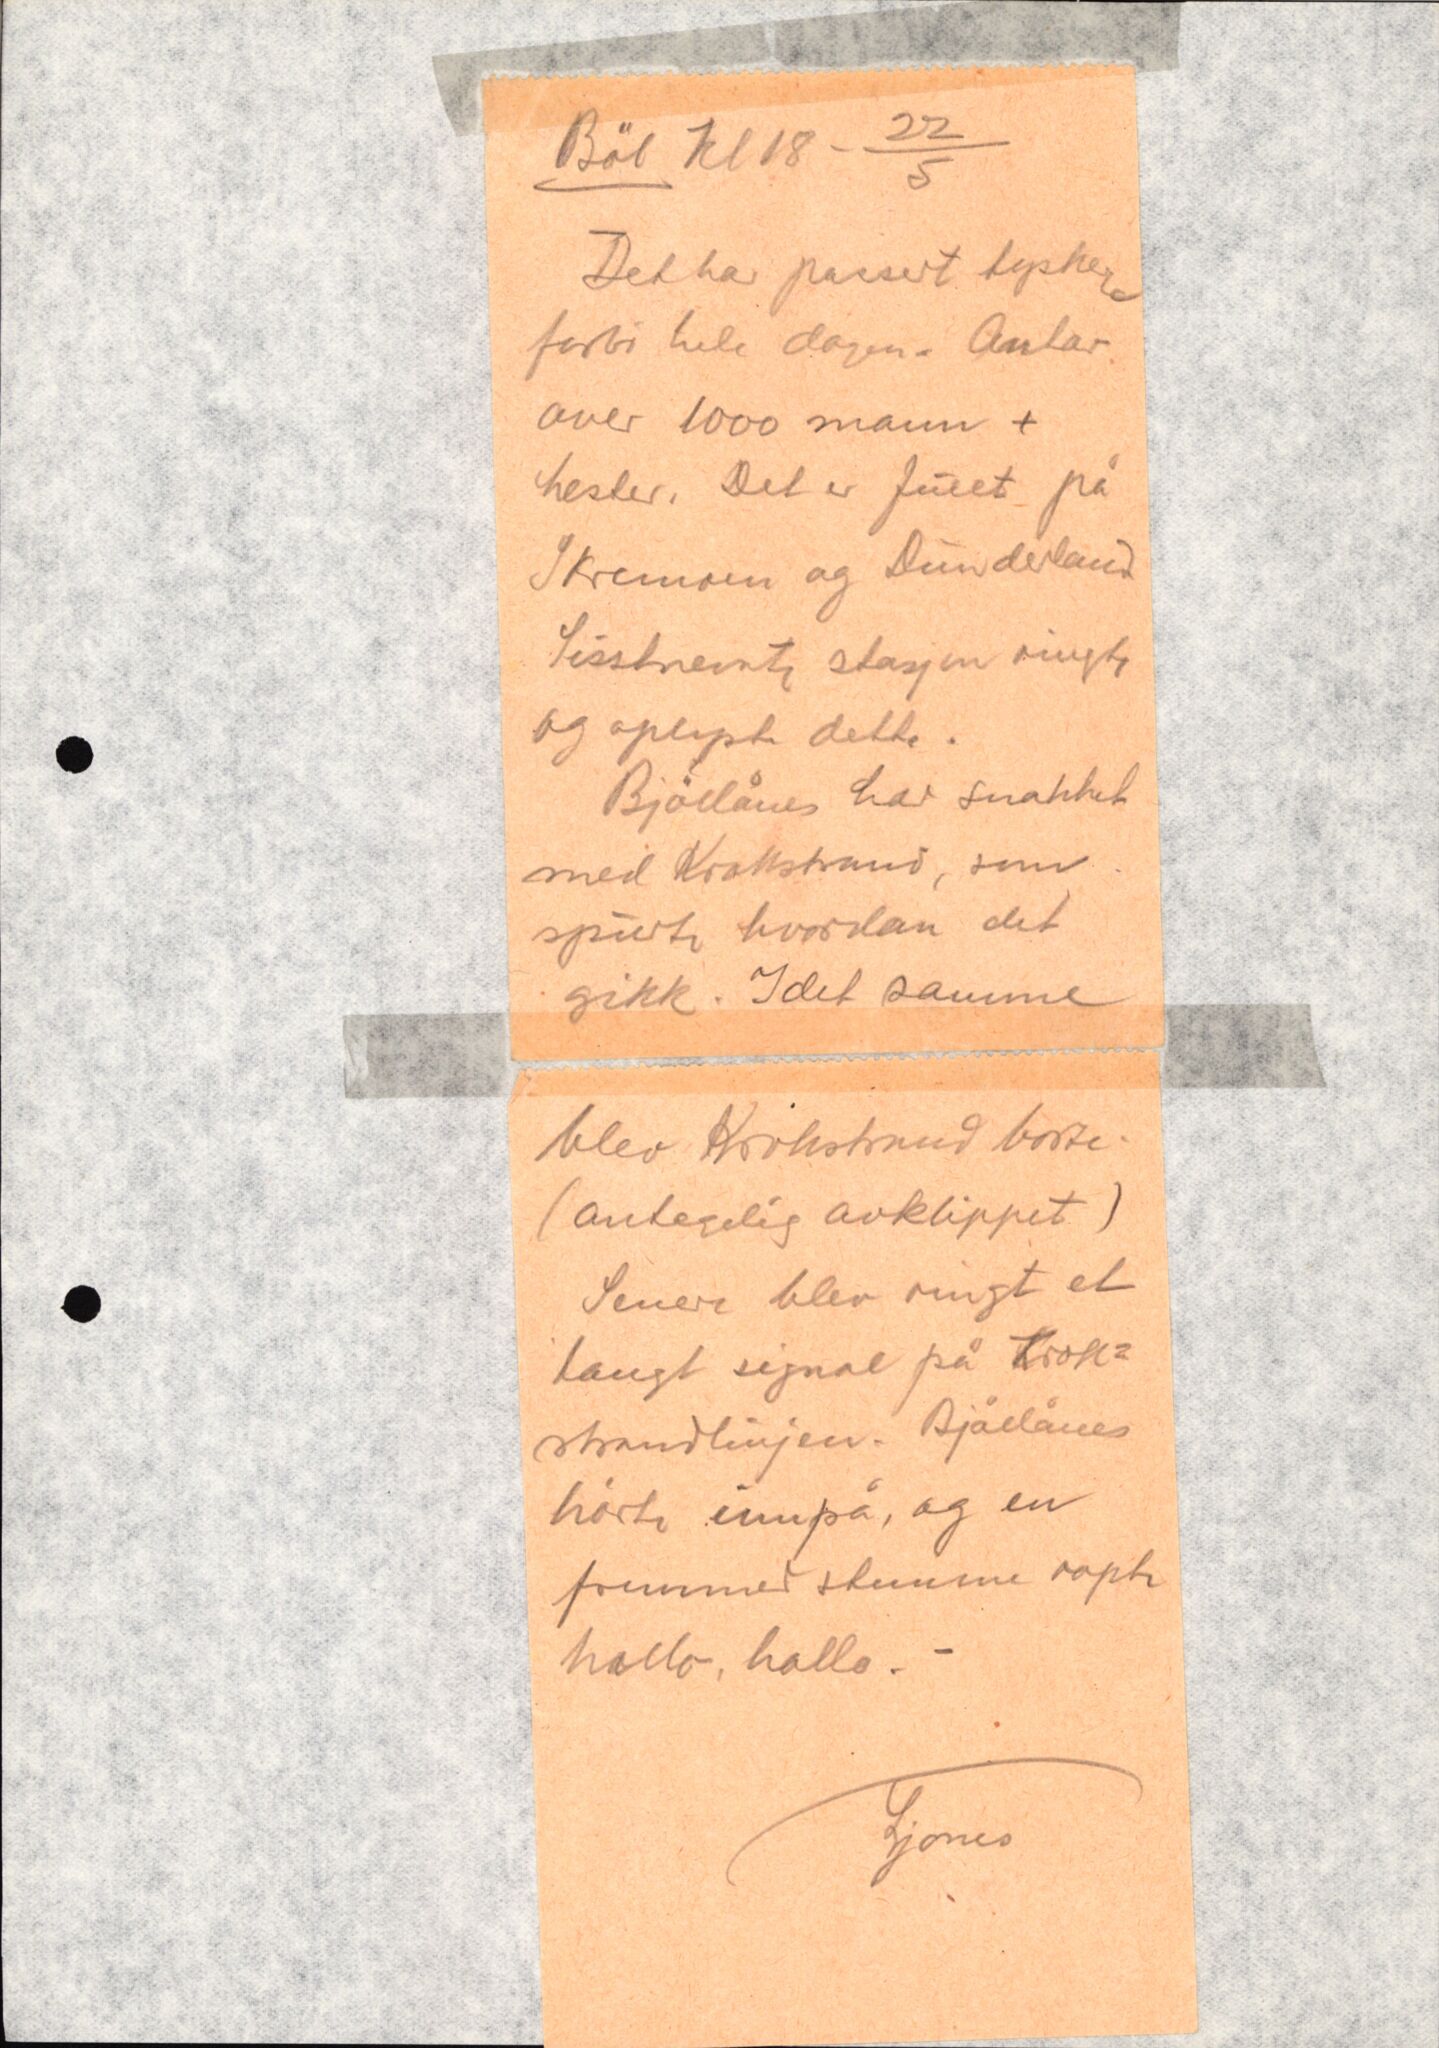 Böl Kl 18 - 22/5
Det har passert tyskere
forbi hele dagen. Antar
over 1000 mann +
hester. Det er fullt på
Skremoen og Dunderland
Sisstnevnte stasjon ringte
og oplyste dette.
Bjöllånes har snakket
med Krokstrand, som
spurte hvordan det
gikk. I det samme
blev Krokstrand borte.
(antagelig avklippet)
Senere blev ringt et
langt signal på Krok=
strandlinjen. Bjållånes
hörte innpå, og en
fremmed stemme ropte
hallo, hallo. -